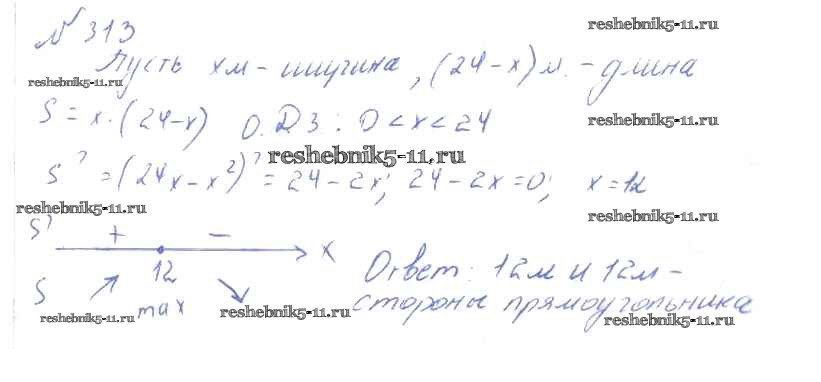 № 313
reshebnik5-11.ru
Пусть xм - ширина, (24-x) м. - длина
reshebnik5-11.ru
S = x·(24-x) О.Д.З.: 0<x<24
reshebnik5-11.ru
S' = (24x - x²)' = 24 - 2x; 24 - 2x = 0; x = 12
reshebnik5-11.ru
reshebnik5-11.ru
reshebnik5-11.ru
S' + - x
12
Ответ: 12м и 12м -
S max
стороны прямоугольника
reshebnik5-11.ru
reshebnik5-11.ru
reshebnik5-11.ru